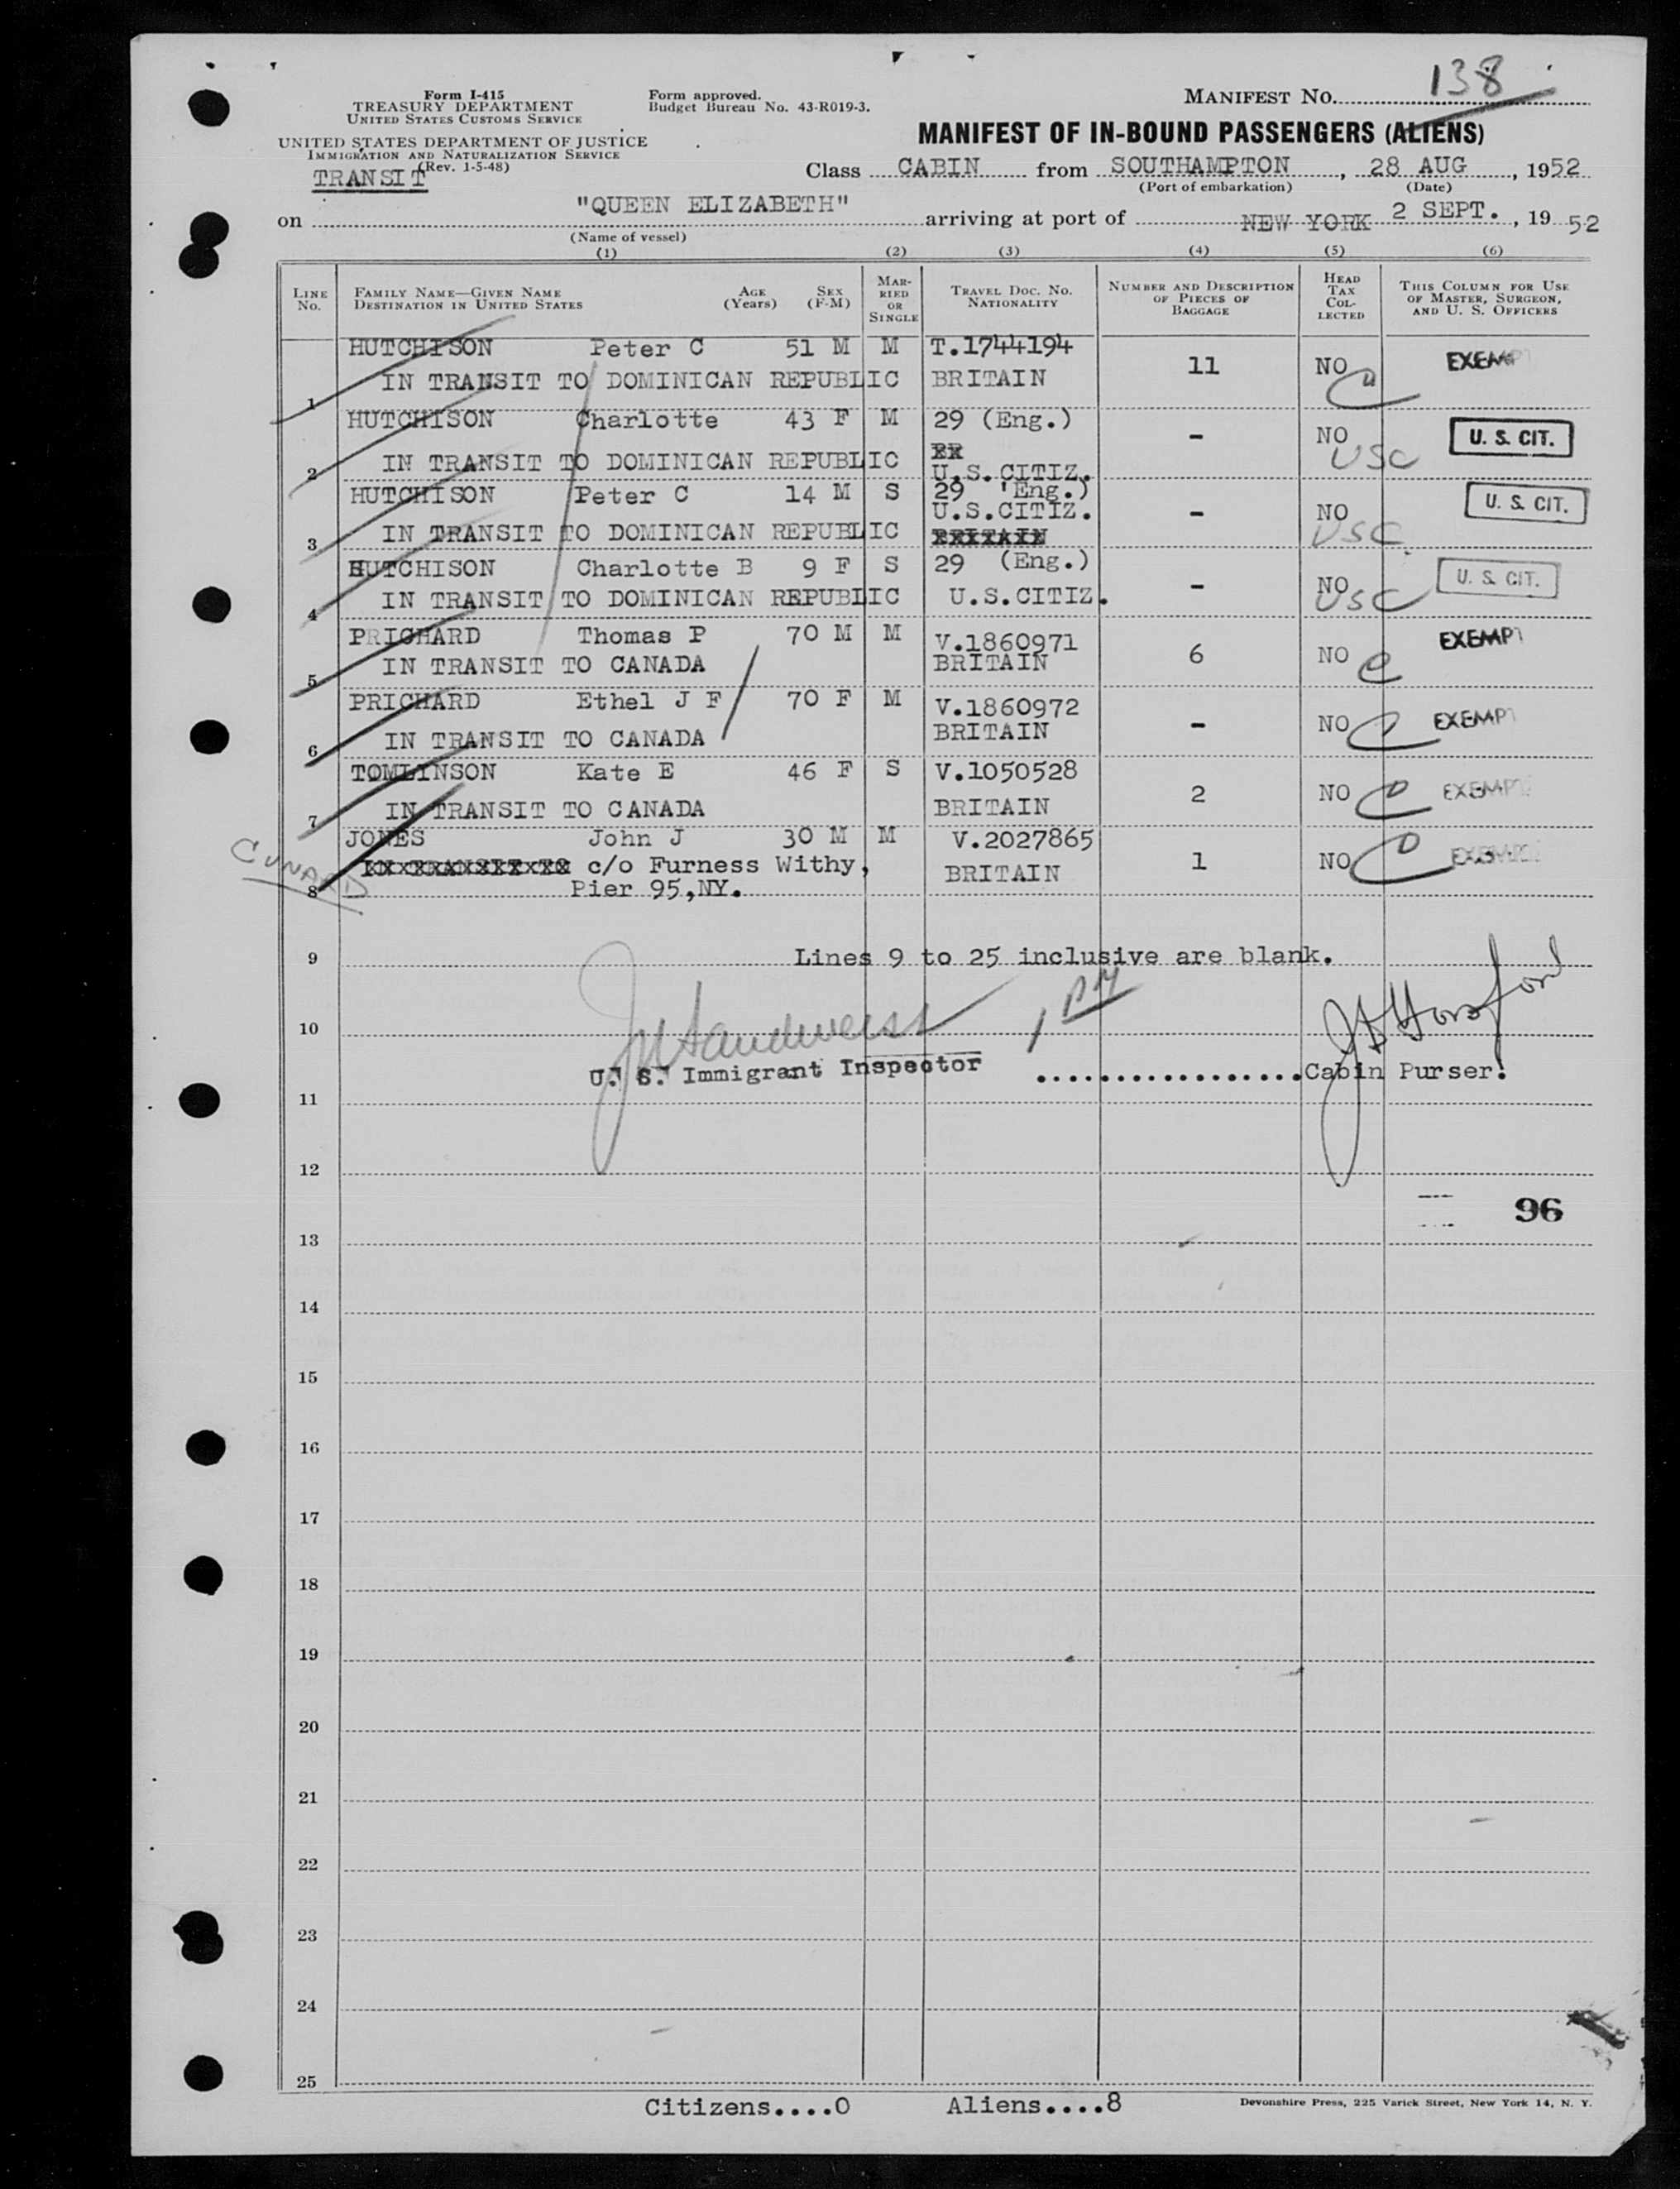 138
Form I-415
TREASURY DEPARTMENT
UNITED STATES CUSTOMS SERVICE
Form approved.
Budget Bureau No. 43-R019-3.
MANIFEST NO.
UNITED STATES DEPARTMENT OF JUSTICE
IMMIGRATION AND NATURALIZATION SERVICE
(Rev. 1-5-48)
TRANSIT
MANIFEST OF IN-BOUND PASSENGERS (ALIENS)
Class CABIN from SOUTHAMPTON, 28 AUG, 1952
(Port of embarkation) (Date)
on "QUEEN ELIZABETH" arriving at port of NEW YORK 2 SEPT., 1952
(Name of vessel)
(1) (2) (3) (4) (5) (6)
LINE NO.
FAMILY NAME—GIVEN NAME AGE SEX
DESTINATION IN UNITED STATES (Years) (F-M)
MARRIED OR SINGLE
TRAVEL DOC. NO. NATIONALITY
NUMBER AND DESCRIPTION OF PIECES OF BAGGAGE
HEAD TAX COLLECTED
THIS COLUMN FOR USE OF MASTER, SURGEON, AND U. S. OFFICERS
HUTCHISON Peter C 51 M M T.1744194
1 IN TRANSIT TO DOMINICAN REPUBLIC BRITAIN 11 NO EXEMP
HUTCHISON Charlotte 43 F M 29 (Eng.)
- NO USC U. S. CIT.
2 IN TRANSIT TO DOMINICAN REPUBLIC U.S.CITIZ.
HUTCHISON Peter C 14 M S 29 'Eng.)
U.S.CITIZ. - NO USC U. S. CIT.
3 IN TRANSIT TO DOMINICAN REPUBLIC BRITAIN
HUTCHISON Charlotte B 9 F S 29 (Eng.)
4 IN TRANSIT TO DOMINICAN REPUBLIC U.S.CITIZ. - NO USC U. S. CIT.
PRICHARD Thomas P 70 M M V.1860971
5 IN TRANSIT TO CANADA BRITAIN 6 NO EXEMPT
PRICHARD Ethel J F 70 F M V.1860972
6 IN TRANSIT TO CANADA BRITAIN - NO EXEMPT
TOMLINSON Kate E 46 F S V.1050528
7 IN TRANSIT TO CANADA BRITAIN 2 NO EXEMPT
JONES John J 30 M M V.2027865
CUNARD c/o Furness Withy, BRITAIN 1 NO EXEMPT
8 Pier 95,NY.
9 Lines 9 to 25 inclusive are blank.
1 PM
10
U. S. Immigrant Inspector .................Cabin Purser.
11
12
96
13
14
15
16
17
18
19
20
21
22
23
24
25
Citizens....0 Aliens....8
Devonshire Press, 225 Varick Street, New York 14, N. Y.